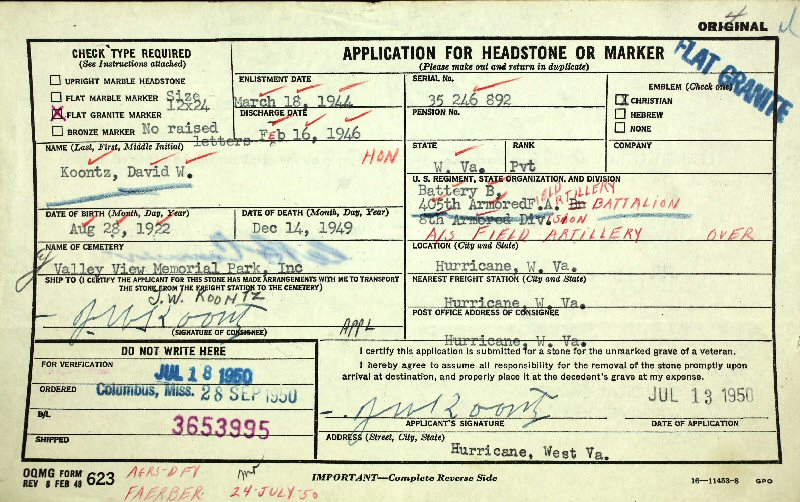 4
ORIGINAL
CHECK TYPE REQUIRED
(See Instructions attached)
UPRIGHT MARBLE HEADSTONE
FLAT MARBLE MARKER Size
12x24
X FLAT GRANITE MARKER
BRONZE MARKER No raised
letters
APPLICATION FOR HEADSTONE OR MARKER
(Please make out and return in duplicate)
FLAT GRANITE
ENLISTMENT DATE
March 18, 1944
DISCHARGE DATE
Feb 16, 1946
SERIAL No.
35 246 892
PENSION No.
EMBLEM (Check one)
X CHRISTIAN
HEBREW
NONE
NAME (Last, First, Middle Initial)
Koontz, David W.
HON
STATE
W. Va.
RANK
Pvt
COMPANY
U. S. REGIMENT, STATE ORGANIZATION, AND DIVISION
Battery B, FIELD ARTILLERY
405th Armored F.A. Bn BATTALION
8th Armored Div. SION
A/S FIELD ARTILLERY OVER
DATE OF BIRTH (Month, Day, Year)
Aug 28, 1922
DATE OF DEATH (Month, Day, Year)
Dec 14, 1949
NAME OF CEMETERY
Valley View Memorial Park, Inc
LOCATION (City and State)
Hurricane, W. Va.
SHIP TO (I CERTIFY THE APPLICANT FOR THIS STONE HAS MADE ARRANGEMENTS WITH ME TO TRANSPORT
THE STONE FROM THE FREIGHT STATION TO THE CEMETERY)
J.W. KOONTZ
J W Koontz
APPL
(SIGNATURE OF CONSIGNEE)
NEAREST FREIGHT STATION (City and State)
Hurricane, W. Va.
POST OFFICE ADDRESS OF CONSIGNEE
Hurricane, W. Va.
DO NOT WRITE HERE
FOR VERIFICATION
JUL 18 1950
ORDERED
Columbus, Miss. 28 SEP 1950
B/L
3653995
SHIPPED
I certify this application is submitted for a stone for the unmarked grave of a veteran.
I hereby agree to assume all responsibility for the removal of the stone promptly upon
arrival at destination, and properly place it at the decedent's grave at my expense.
J W Koontz
JUL 13 1950
APPLICANT'S SIGNATURE
DATE OF APPLICATION
ADDRESS (Street, City, State)
Hurricane, West Va.
OQMG FORM
REV 8 FEB 49 623
AGRS-DFY
FAERBER 24-JULY-50
IMPORTANT—Complete Reverse Side
16—11453-8 GPO